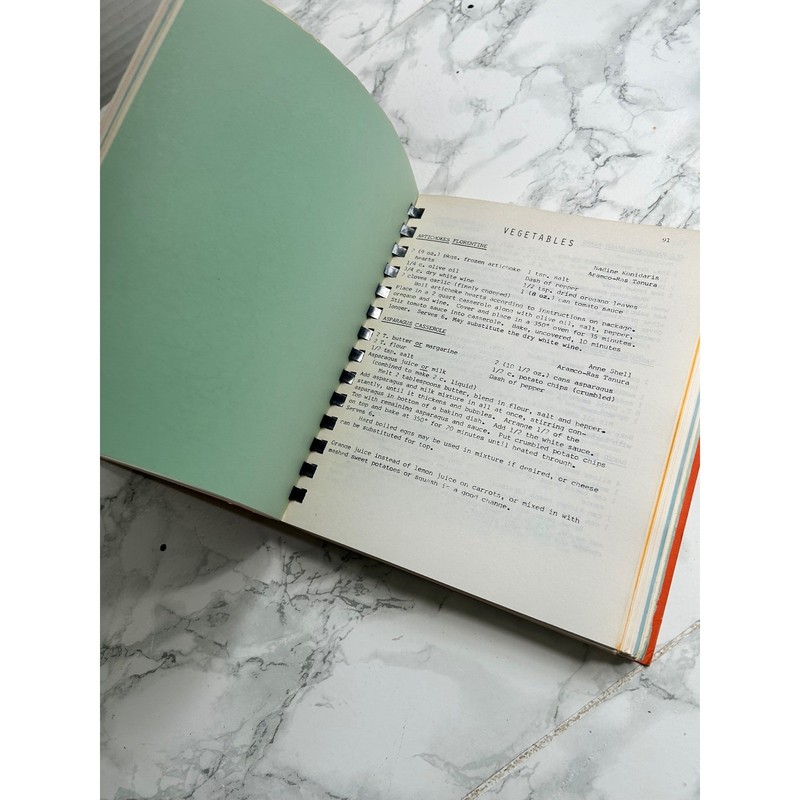 91
VEGETABLES
ARTICHOKES FLORENTINE
Nadine Konidaris
Aramco-Ras Tanura
(9 oz.) pkgs. frozen artichoke hearts
1/4 c. olive oil
1/4 c. dry white wine
2 cloves garlic (finely chopped)
1 tsp. salt
Dash of pepper
1/2 tsp. dried oregano leaves
1 (8 oz.) can tomato sauce
Boil artichoke hearts according to instructions on package.
Place in a 2 quart casserole along with olive oil, salt, pepper,
oregano and wine. Cover and place in a 350° oven for 35 minutes.
Stir tomato sauce into casserole. Bake, uncovered, 10 minutes
longer. Serves 6. May substitute the dry white wine.
ASPARAGUS CASSEROLE
Anne Shell
Aramco-Ras Tanura
2 T. butter or margarine
2 T. flour
1/2 tsp. salt
Asparagus juice or milk
(combined to make 2 c. liquid)
2 (10 1/2 oz.) cans asparagus
1/2 c. potato chips (crumbled)
Dash of pepper
Melt 2 tablespoons butter, blend in flour, salt and pepper.
Add asparagus and milk mixture in all at once, stirring con-
stantly, until it thickens and bubbles. Arrange 1/2 of the
asparagus in bottom of a baking dish. Add 1/2 the white sauce.
Top with remaining asparagus and sauce. Put crumbled potato chips
on top and bake at 350° for 20 minutes until heated through.
Serves 6.
Hard boiled eggs may be used in mixture if desired, or cheese
can be substituted for top.
Orange juice instead of lemon juice on carrots, or mixed in with
mashd sweet potatoes or squash is a good change.